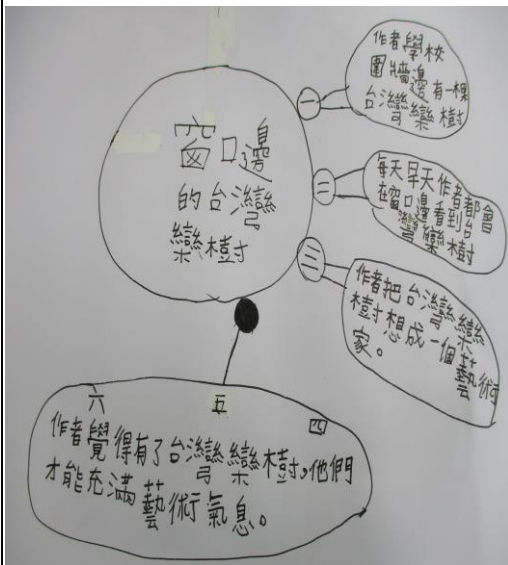 窗口邊
的台灣
欒樹
一
作者學校
圍牆邊有一棵
台灣欒樹
二
每天早天作者都會
在窗口邊看到台
灣欒樹
三
作者把台灣欒
樹想成一個藝術
家。
六 五 四
作者覺得有了台灣欒樹。他們
才能充滿藝術氣息。